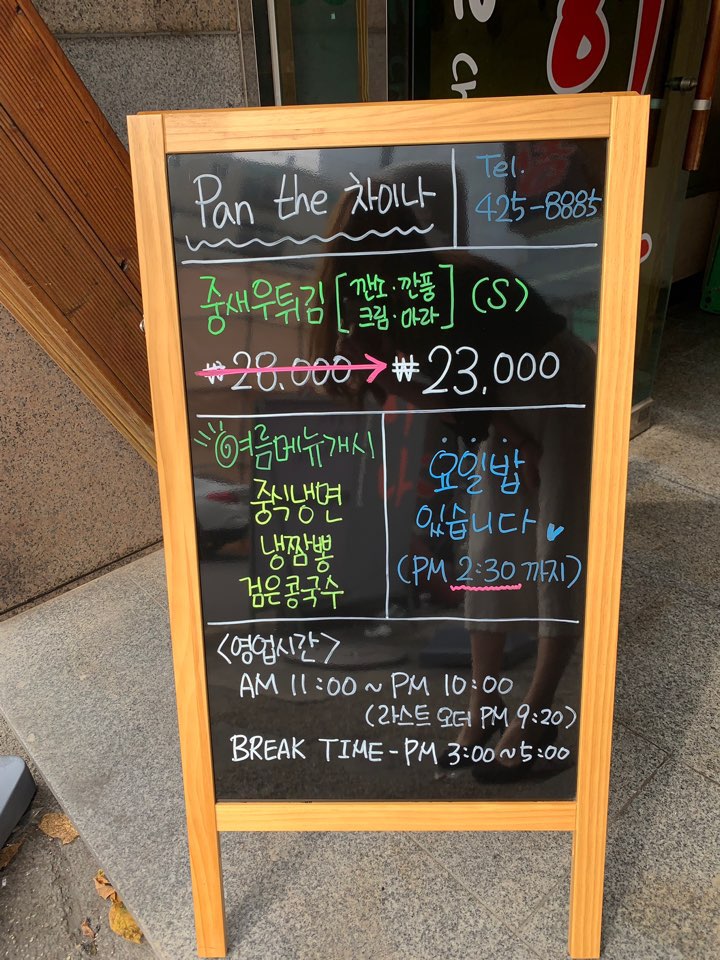 Pan the 차이나
Tel.
425-8885
중새우튀김 [깐쇼·깐풍 크림·마라] (S)
₩28,000 → ₩23,000
여름메뉴개시
중식냉면
냉짬뽕
검은콩국수
요일밥
있습니다
(PM 2:30 까지)
<영업시간>
AM 11:00 ~ PM 10:00
(라스트 오더 PM 9:20)
BREAK TIME - PM 3:00 ~ 5:00